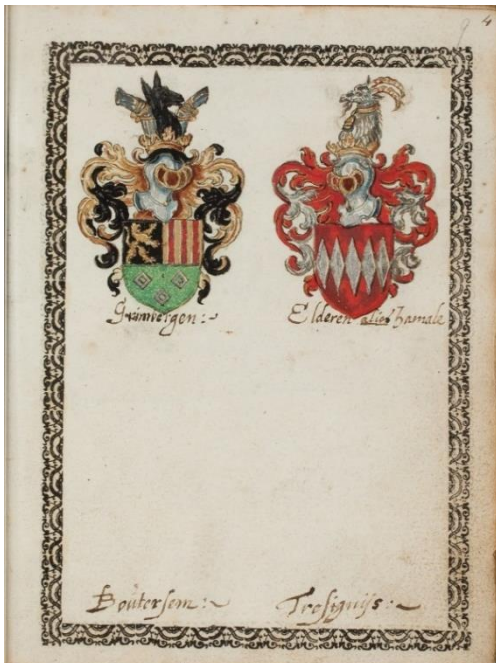 9 4
Grimbergen:~
Elderen alias Hamale
Boutersem:~ Tresignijs:~